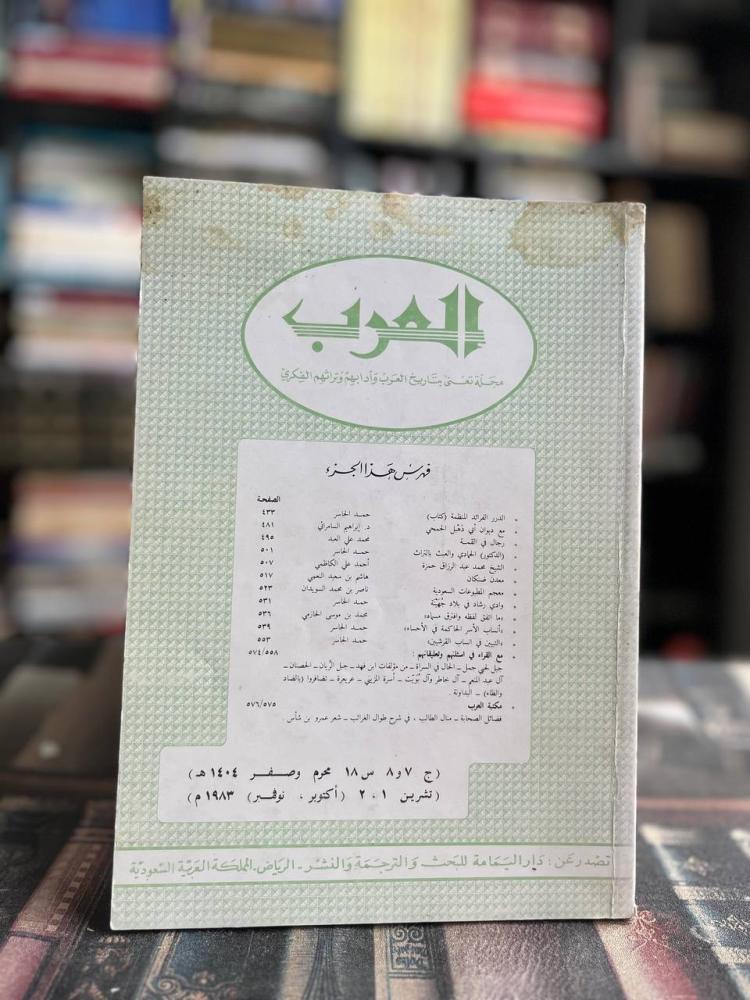 العرب
مجلة تعنى بتاريخ العرب وآدابهم وتراثهم الفكري
فهرس هذا الجزء
الصفحة
الدرر الفرائد المنظمة (كتاب) حمد الجاسر ٤٣٣
مع ديوان أبي دهبل الجمحي د. إبراهيم السامرائي ٤٨١
رجال في القمة محمد علي العبد ٤٩٥
(الدكتور) الحمادي والعبث بالتراث حمد الجاسر ٥٠١
الشيخ محمد عبد الرزاق حمزة أحمد علي الكاظمي ٥٠٧
معدن ضنكان هاشم بن سعيد النعمي ٥١٧
معجم المطبوعات السعودية ناصر بن محمد السويدان ٥٢٣
وادي رشاد في بلاد جُهَيْنَة حمد الجاسر ٥٣١
«ما اتفق لفظه وافترق مسماه» محمد بن موسى الحازمي ٥٣٦
«أنساب الأسر الحاكمة في الأحساء» حمد الجاسر ٥٣٩
«التبيين في أنساب القرشيين» حمد الجاسر ٥٥٣
مع القراء في أسئلتهم وتعليقاتهم : ٥٧٤/٥٥٨
جبل لحيي جمل ـ الخال في السراة ـ من مؤلفات ابن فهد ـ جبل الرُّبان ـ الحصنان ـ
آل عبد المنعم ـ آل خاطر وآل بُوَيْت ـ أسرة المزيني ـ عريعرة ـ تضافروا (بالضاد
والظاء) ـ البداونة .
مكتبة العرب ٥٧٦/٥٧٥
فضائل الصحابة ـ منال الطالب ، في شرح طوال الغرائب ـ شعر عمرو بن شأس .
(ج ٧ و ٨ س ١٨ محرم وصفر ١٤٠٤ هـ)
(تشرين ١ ، ٢ (أكتوبر ، نوفمبر) ١٩٨٣ م)
تصدر عن : دار اليمامة للبحث والترجمة والنشر ـ الرياض ـ المملكة العربية السعودية